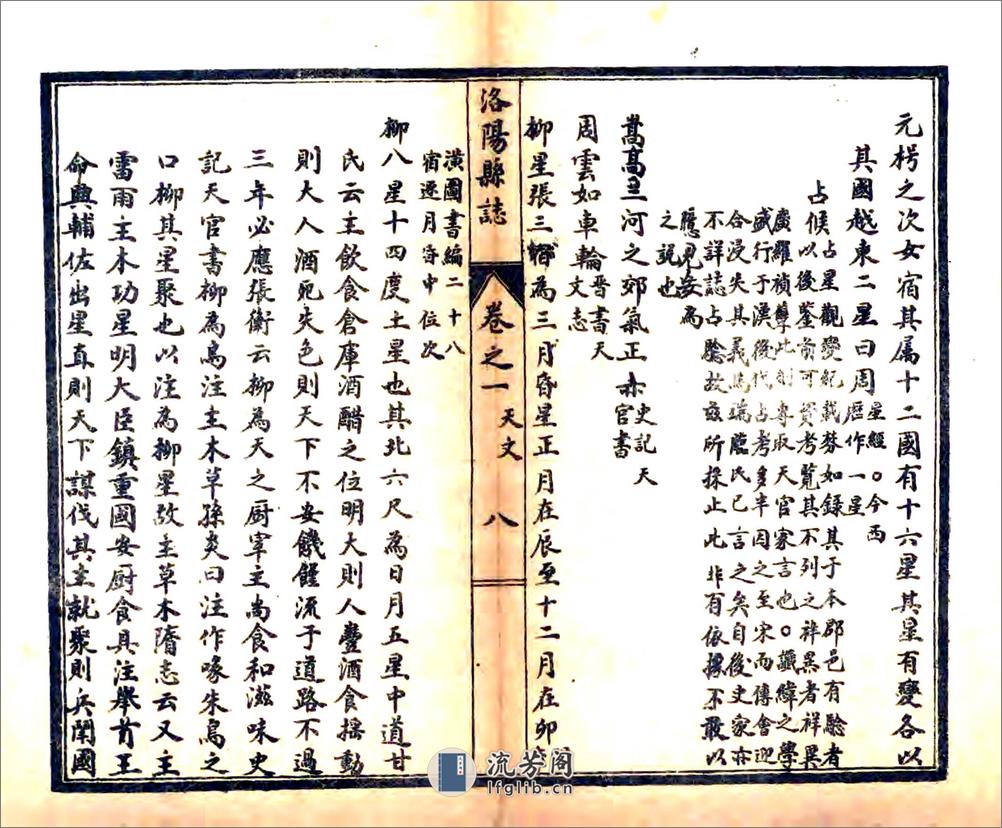 元枵之次女宿其属十二國有十六星其星有變各以
其國越東二星曰周
星經○今西
歷作一星
占候
以後鉴前可資考覽其不列之祥異者祥異
盛行于漢後代占考多半因之至宋而傳會迎
合浸失其義馬端臨氏已言之矣自後史家亦
不詳誌占驗故兹所採止此非有依據不敢以
應見妄為
之說也
嵩高三河之郊氣正赤
史記天
官書
周雲如車輪
晋書天
文志
柳星張三宿為三月昏星正月在辰至十二月在卯
洛陽縣誌
卷之一
天文
八
潢圖書編二十八
宿逐月昏中位次
柳八星十四度土星也其北六尺為日月五星中道甘
氏云主飲食倉庫酒醋之位明大則人豐酒食摇動
則大人酒死失色則天下不安饑饉流于道路不過
三年必應張衡云柳為天之厨宰主尚食和滋味史
記天官書柳為鳥注主木草孫炎曰注作喙朱鳥之
口柳其星聚也以注為柳星故主草木隋志云又主
雷雨主木功星明大臣鎮重國安厨食具注舉首王
命興輔佐出星直則天下謀伐其主就聚則兵鬧國
流芳阁
lfglib.cn